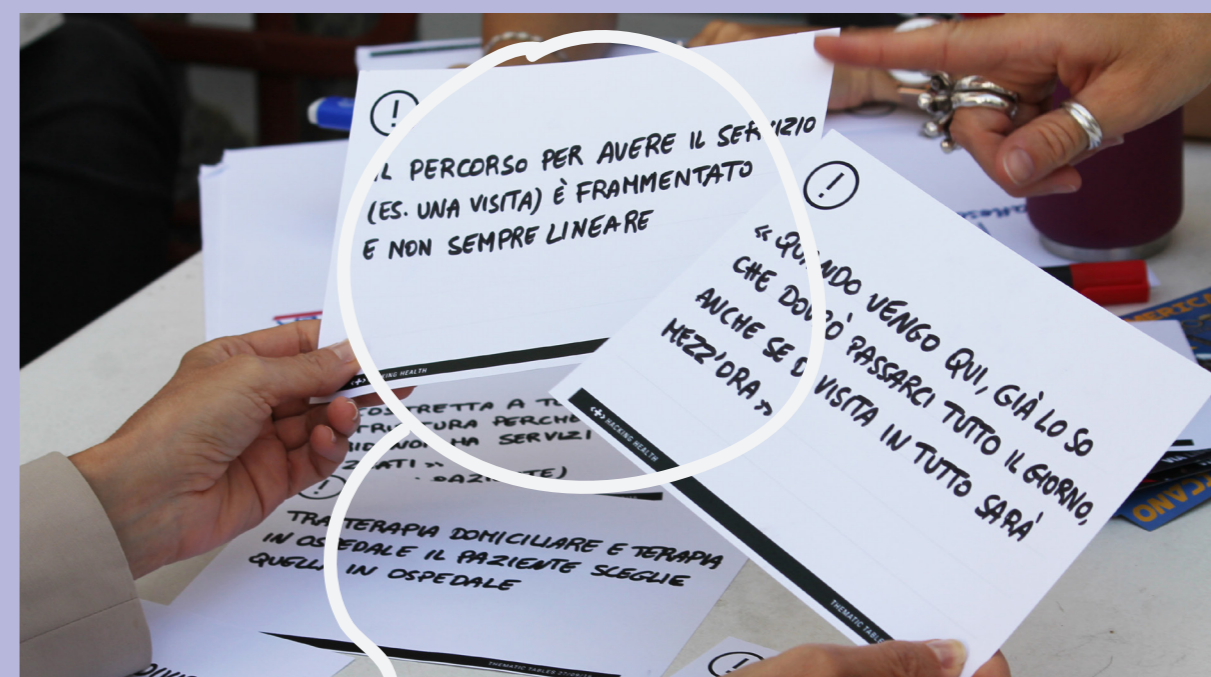 IL PERCORSO PER AVERE IL SERVIZIO
(ES. UNA VISITA) È FRAMMENTATO
E NON SEMPRE LINEARE
HACKING HEALTH
« QUANDO VENGO QUI, GIÀ LO SO
CHE DOVRÒ PASSARCI TUTTO IL GIORNO,
ANCHE SE LA VISITA IN TUTTO SARÀ
MEZZ'ORA »
HACKING HEALTH
THEMATIC TABLES
COSTRETTA A
PERCHÉ
NON HA SERVIZI
TRA TERAPIA DOMICILIARE E TERAPIA
IN OSPEDALE IL PAZIENTE SCEGLIE
QUELLA IN OSPEDALE
THEMATIC TABLES